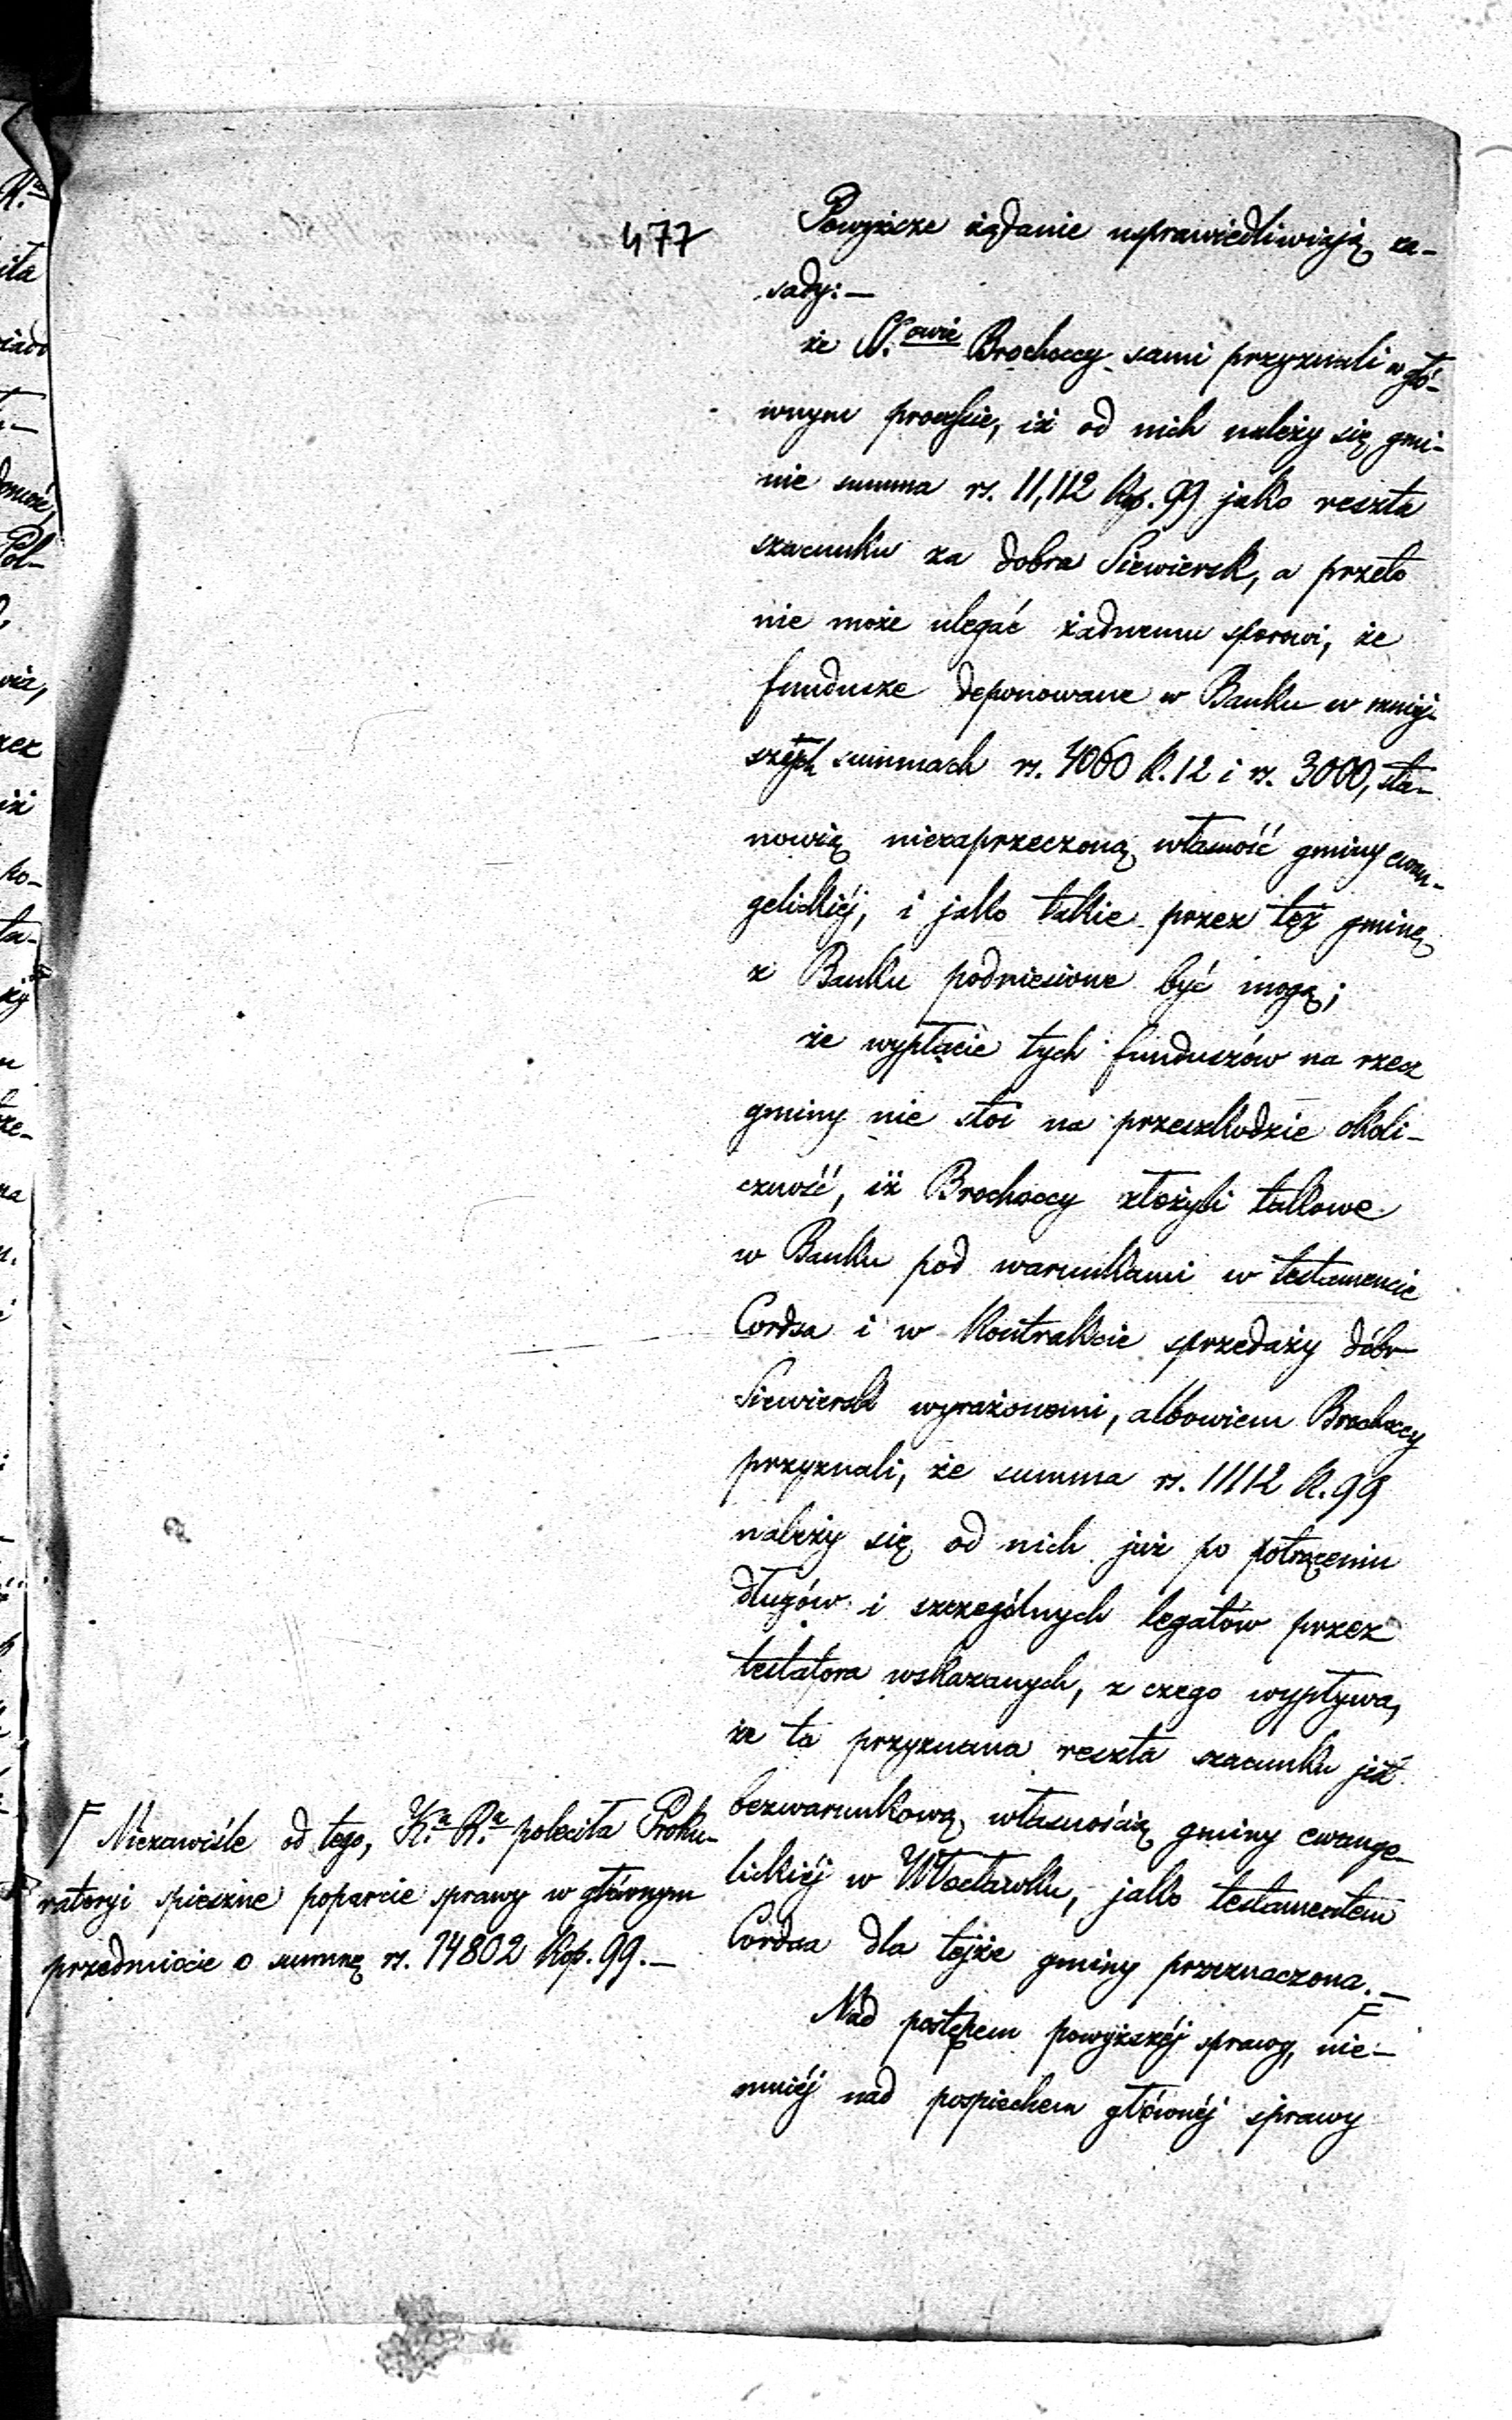 477
Powyższe żądanie usprawiedliwiają za-
sady:—
że S.owie Brochoccy sami przyznali w głó-
wnym processie, iż od nich należy się gmi-
nie summa rs. 11,112 kop. 99 jako reszta
szacunku za dobra Siewiersk, a przeto
nie może ulegać żadnemu sporowi, że
fundusze deponowane w Banku w mniej-
szych summach rs. 4060 k. 12 i rs. 3000, sta-
nowią niezaprzeczoną własność gminy ewan-
gelickiéj, i jako takie przez tęż gminę
z Banku podniesione być mogą;
że wypłacie tych funduszów na rzecz
gminy nie stoi na przeszkodzie okoli-
czność, iż Brochoccy złożyli takowe
w Banku pod warunkami w testamencie
Cordsa i w kontrakcie sprzedaży dóbr
Siewiersk wyrażonemi, albowiem Brochoccy
przyznali, że summa rs. 11112 k. 99
należy się od nich już po potrąceniu
długów i szczególnych legatów przez
testatora wskazanych, z czego wypływa,
że ta przyznana reszta szacunku jest
bezwarunkową własnością gminy ewange-
lickiéj w Włocławku, jako testamentem
Cordsa dla tejże gminy przeznaczona.—
Nad postępem powyższéj sprawy, nie-
mniéj nad pospiechem głównéj sprawy
F Niezawiśle od tego, K.a R.a poleciła Proku-
ratoryi spieszne poparcie sprawy w głównym
przedmiocie o summę rs. 14802 kop. 99.—